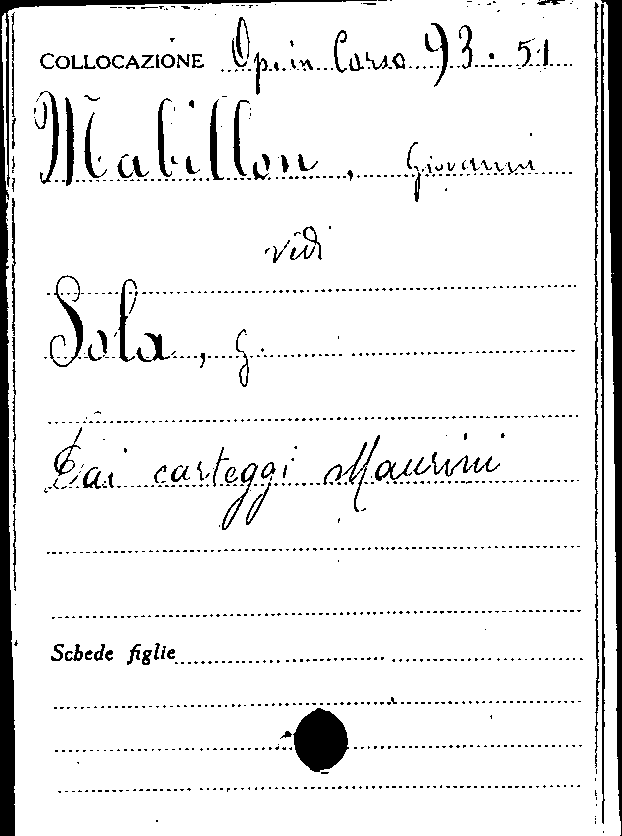 COLLOCAZIONE Op. in Corso 93. 51
Mabillon, Giovanni
vedi
Sola, G.
Dai carteggi Maurini
Schede figlie